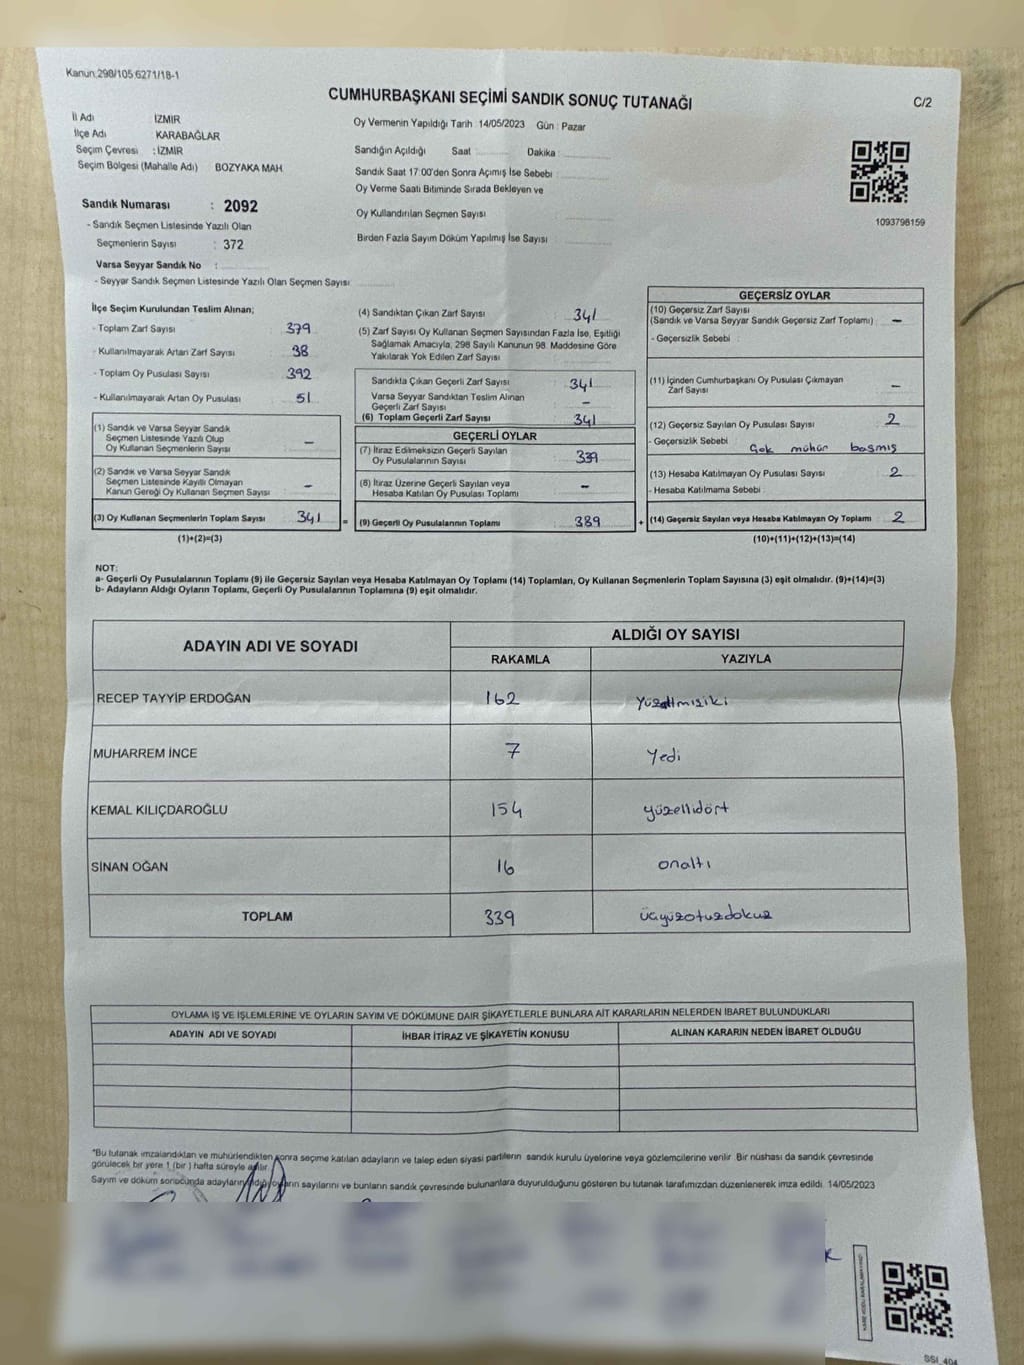 Kanun:298/105 6271/18-1
CUMHURBAŞKANI SEÇİMİ SANDIK SONUÇ TUTANAĞI
C/2
İl Adı İZMİR
İlçe Adı KARABAĞLAR
Seçim Çevresi : İZMİR
Seçim Bölgesi (Mahalle Adı) BOZYAKA MAH.
Oy Vermenin Yapıldığı Tarih : 14/05/2023 Gün : Pazar
Sandığın Açıldığı Saat Dakika :
Sandık Saat 17:00'den Sonra Açımış İse Sebebi :
Oy Verme Saati Bitiminde Sırada Bekleyen ve
Oy Kullandırılan Seçmen Sayısı
Birden Fazla Sayım Döküm Yapılmış İse Sayısı :
1093798159
Sandık Numarası : 2092
- Sandık Seçmen Listesinde Yazılı Olan
Seçmenlerin Sayısı : 372
Varsa Seyyar Sandık No :
- Seyyar Sandık Seçmen Listesinde Yazılı Olan Seçmen Sayısı
İlçe Seçim Kurulundan Teslim Alınan;
- Toplam Zarf Sayısı 379
- Kullanılmayarak Artan Zarf Sayısı 38
- Toplam Oy Pusulası Sayısı 392
- Kullanılmayarak Artan Oy Pusulası 51
(1) Sandık ve Varsa Seyyar Sandık
Seçmen Listesinde Yazılı Olup
Oy Kullanan Seçmenlerin Sayısı –
(2) Sandık ve Varsa Seyyar Sandık
Seçmen Listesinde Kayıtlı Olmayan
Kanun Gereği Oy Kullanan Seçmen Sayısı –
(3) Oy Kullanan Seçmenlerin Toplam Sayısı 341 =
(1)+(2)=(3)
(4) Sandıktan Çıkan Zarf Sayısı 341
(5) Zarf Sayısı Oy Kullanan Seçmen Sayısından Fazla İse, Eşitliği
Sağlamak Amacıyla, 298 Sayılı Kanunun 98. Maddesine Göre
Yakılarak Yok Edilen Zarf Sayısı
Sandıkta Çıkan Geçerli Zarf Sayısı 341
Varsa Seyyar Sandıktan Teslim Alınan
Geçerli Zarf Sayısı –
(6) Toplam Geçerli Zarf Sayısı 341
GEÇERLİ OYLAR
(7) İtiraz Edilmeksizin Geçerli Sayılan
Oy Pusulalarının Sayısı 339
(8) İtiraz Üzerine Geçerli Sayılan veya
Hesaba Katılan Oy Pusulası Toplamı –
(9) Geçerli Oy Pusulalarının Toplamı 339 +
GEÇERSİZ OYLAR
(10) Geçersiz Zarf Sayısı
(Sandık ve Varsa Seyyar Sandık Geçersiz Zarf Toplamı) : –
- Geçersizlik Sebebi :
(11) İçinden Cumhurbaşkanı Oy Pusulası Çıkmayan
Zarf Sayısı –
(12) Geçersiz Sayılan Oy Pusulası Sayısı 2
- Geçersizlik Sebebi Çok mühür basmış
(13) Hesaba Katılmayan Oy Pusulası Sayısı 2
- Hesaba Katılmama Sebebi :
(14) Geçersiz Sayılan veya Hesaba Katılmayan Oy Toplamı 2
(10)+(11)+(12)+(13)=(14)
NOT:
a- Geçerli Oy Pusulalarının Toplamı (9) ile Geçersiz Sayılan veya Hesaba Katılmayan Oy Toplamı (14) Toplamları, Oy Kullanan Seçmenlerin Toplam Sayısına (3) eşit olmalıdır. (9)+(14)=(3)
b- Adayların Aldığı Oyların Toplamı, Geçerli Oy Pusulalarının Toplamına (9) eşit olmalıdır.
ADAYIN ADI VE SOYADI
ALDIĞI OY SAYISI
RAKAMLA YAZIYLA
RECEP TAYYİP ERDOĞAN 162 yüzaltmışiki
MUHARREM İNCE 7 Yedi
KEMAL KILIÇDAROĞLU 154 yüzellidört
SİNAN OĞAN 16 onaltı
TOPLAM 339 üçyüzotuzdokuz
OYLAMA İŞ VE İŞLEMLERİNE VE OYLARIN SAYIM VE DÖKÜMÜNE DAİR ŞİKAYETLERLE BUNLARA AİT KARARLARIN NELERDEN İBARET BULUNDUKLARI
ADAYIN ADI VE SOYADI İHBAR İTİRAZ VE ŞİKAYETİN KONUSU ALINAN KARARIN NEDEN İBARET OLDUĞU
"Bu tutanak imzalandıktan ve mühürlendikten sonra seçime katılan adayların ve talep eden siyasi partilerin sandık kurulu üyelerine veya gözlemcilerine verilir. Bir nüshası da sandık çevresinde
görülecek bir yere 1 (bir) hafta süreyle asılır.
Sayım ve döküm sonucunda adayların aldığı oyların sayılarını ve bunların sandık çevresinde bulunanlara duyurulduğunu gösteren bu tutanak tarafımızdan düzenlenerek imza edildi. 14/05/2023
SSI_404